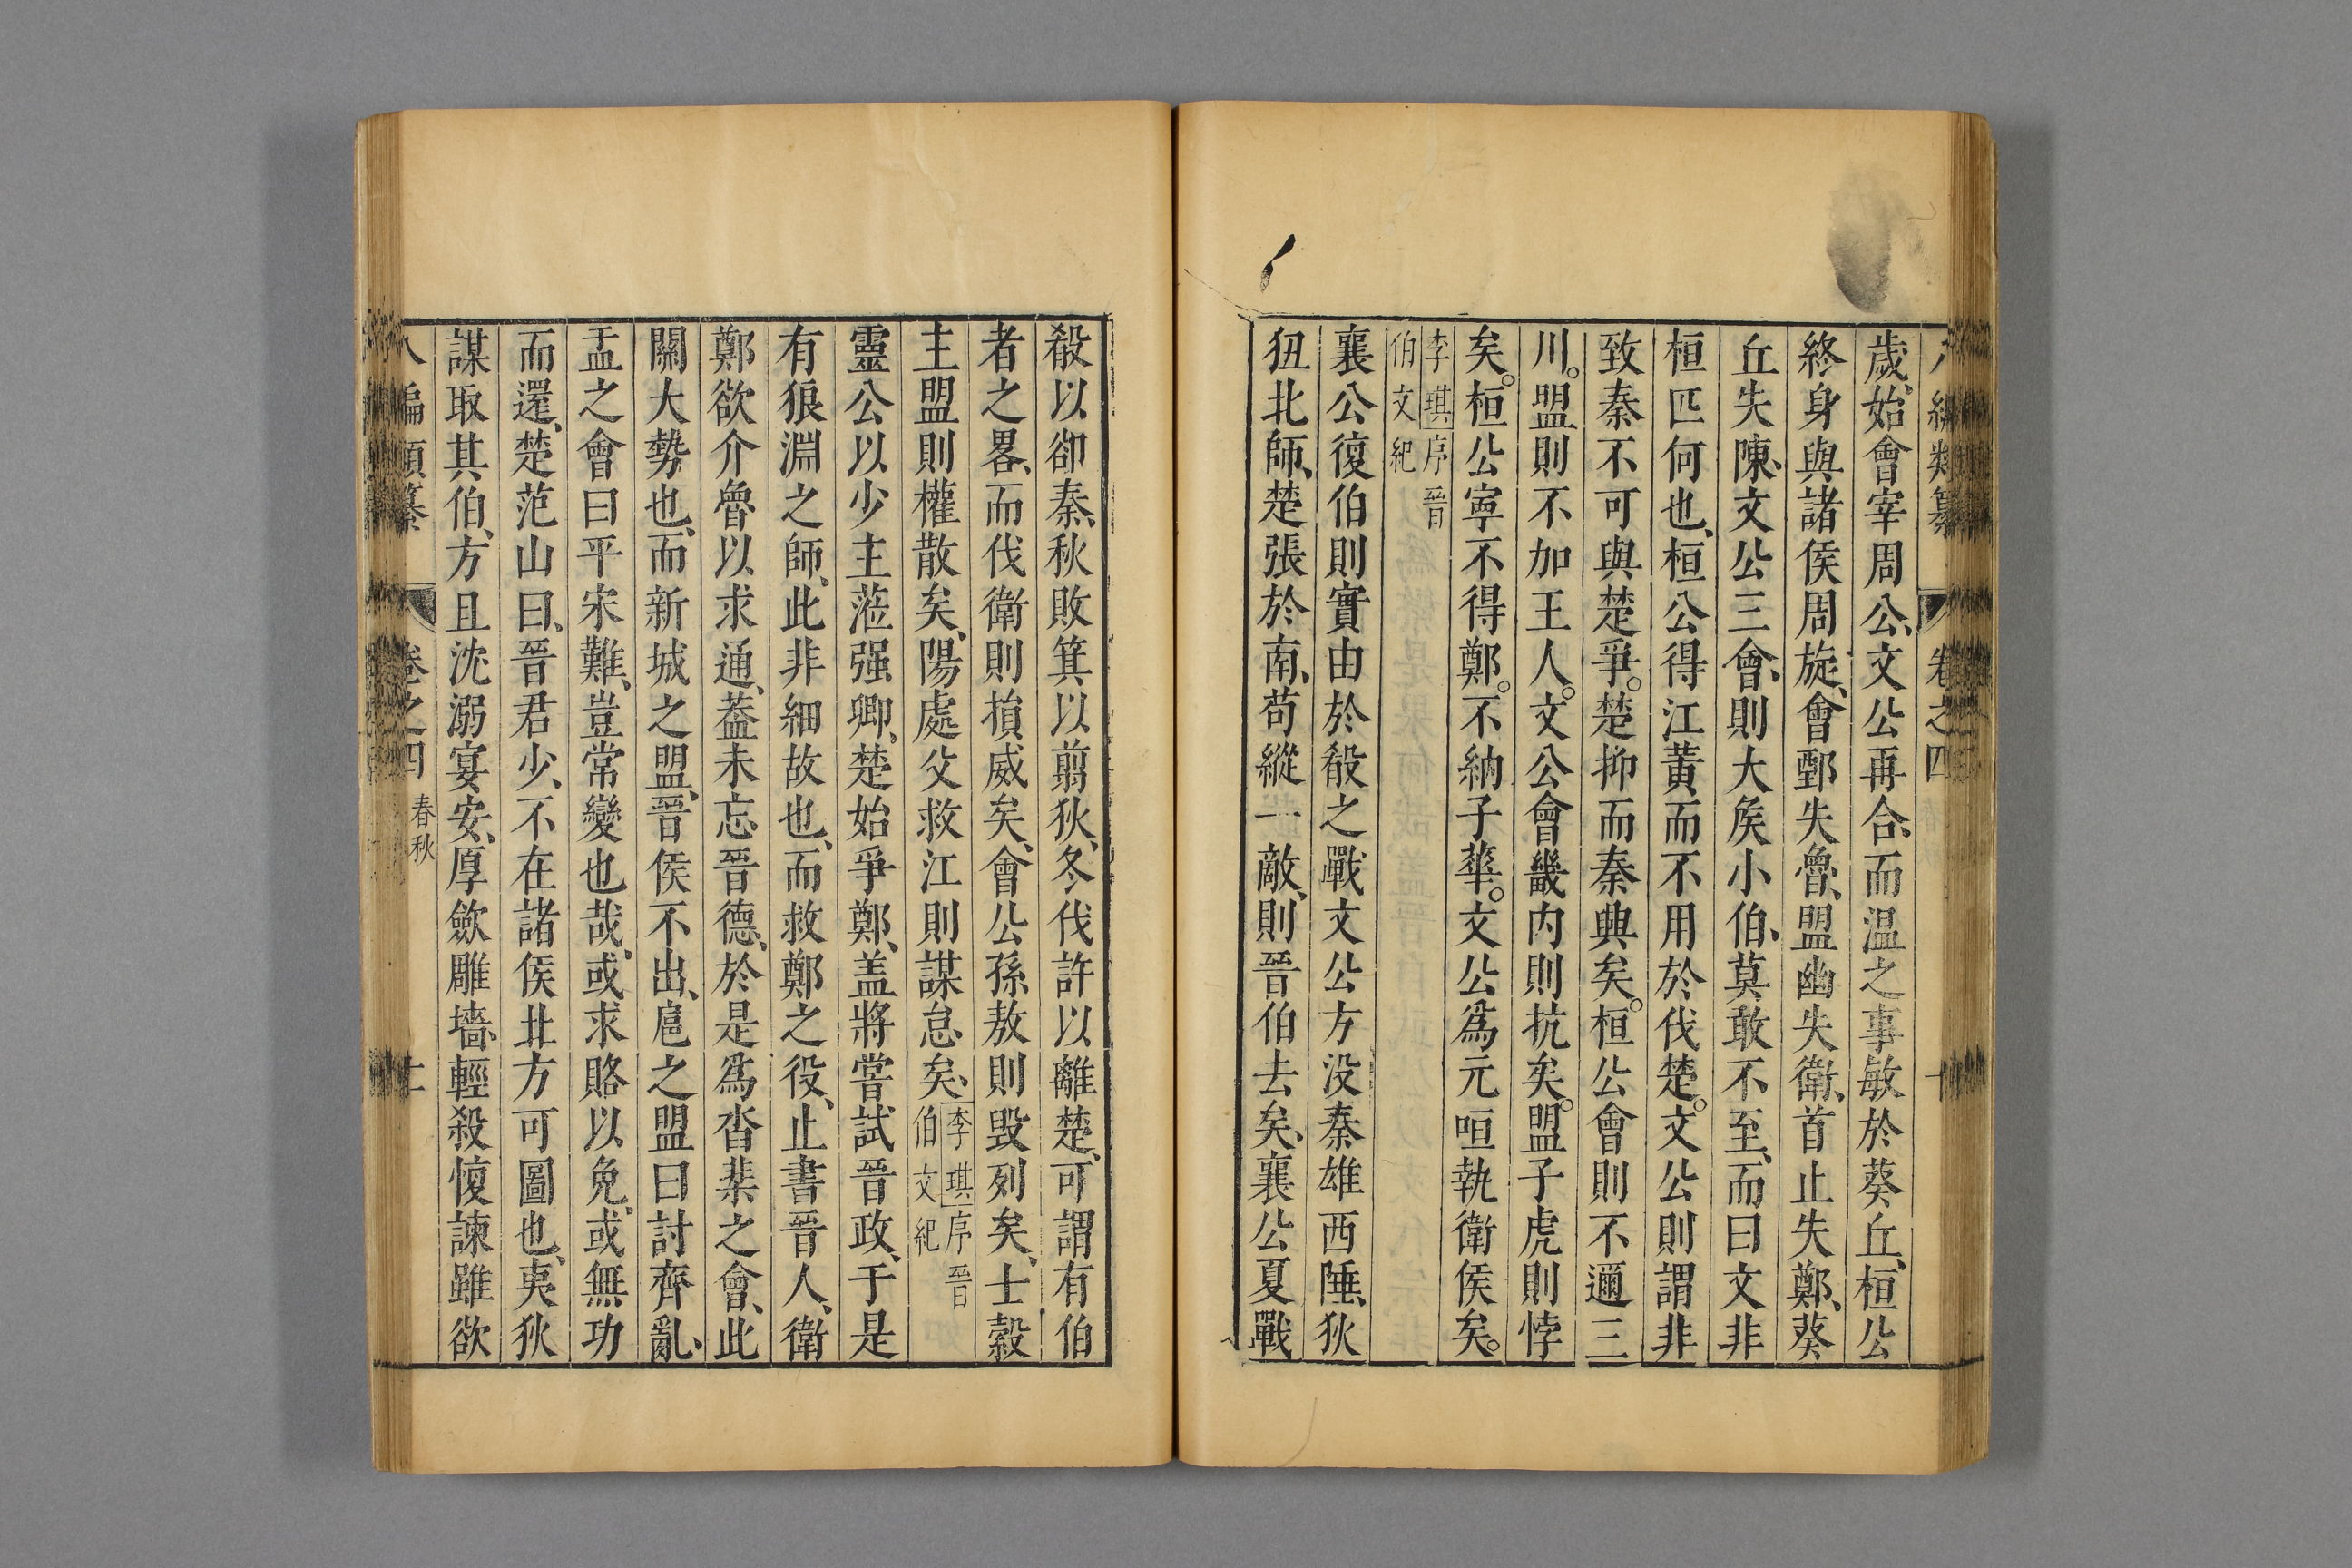 八編類纂 卷之四 十
歲、始會宰周公、文公再合、而温之事敏於葵丘、桓公
終身與諸侯周旋、會鄄失魯、盟幽失衛、首止失鄭、葵
丘失陳、文公三會、則大矦小伯、莫敢不至、而曰文非
桓匹何也、桓公得江黄而不用於伐楚。文公則謂非
致秦不可與楚爭。楚抑而秦興矣。桓公會則不邇三
川。盟則不加王人。文公會畿内則抗矣。盟子虎則悖
矣。桓公寧不得鄭。不納子華。文公爲元咺執衛侯矣。
李琪序晉
伯文紀
襄公復伯則實由於殽之戰文公方没秦雄西陲、狄
狃北師、楚張於南、茍縱一敵、則晉伯去矣、襄公夏戰
殽以卻秦、秋敗箕以剪狄、冬伐許以離楚、可謂有伯
者之畧、而伐衛則損威矣、會公孫敖則毁列矣、士縠
主盟則權散矣、陽處父救江則謀怠矣、
李琪序晉
伯文紀
靈公以少主蒞强卿、楚始爭鄭、盖將嘗試晉政、于是
有狼淵之師、此非細故也、而救鄭之役、止書晉人、衛
鄭欲介魯以求通、葢未忘晉德、於是爲沓棐之會、此
關大勢也、而新城之盟、晉侯不出、扈之盟曰討齊亂、
盂之會曰平宋難、豈常變也哉、或求賂以免、或無功
而還、楚范山曰、晉君少、不在諸侯北方可圖也、夷狄
謀取其伯、方且沈溺宴安、厚斂雕墻、輕殺愎諫雖欲
八編類纂 卷之四 春秋 十一